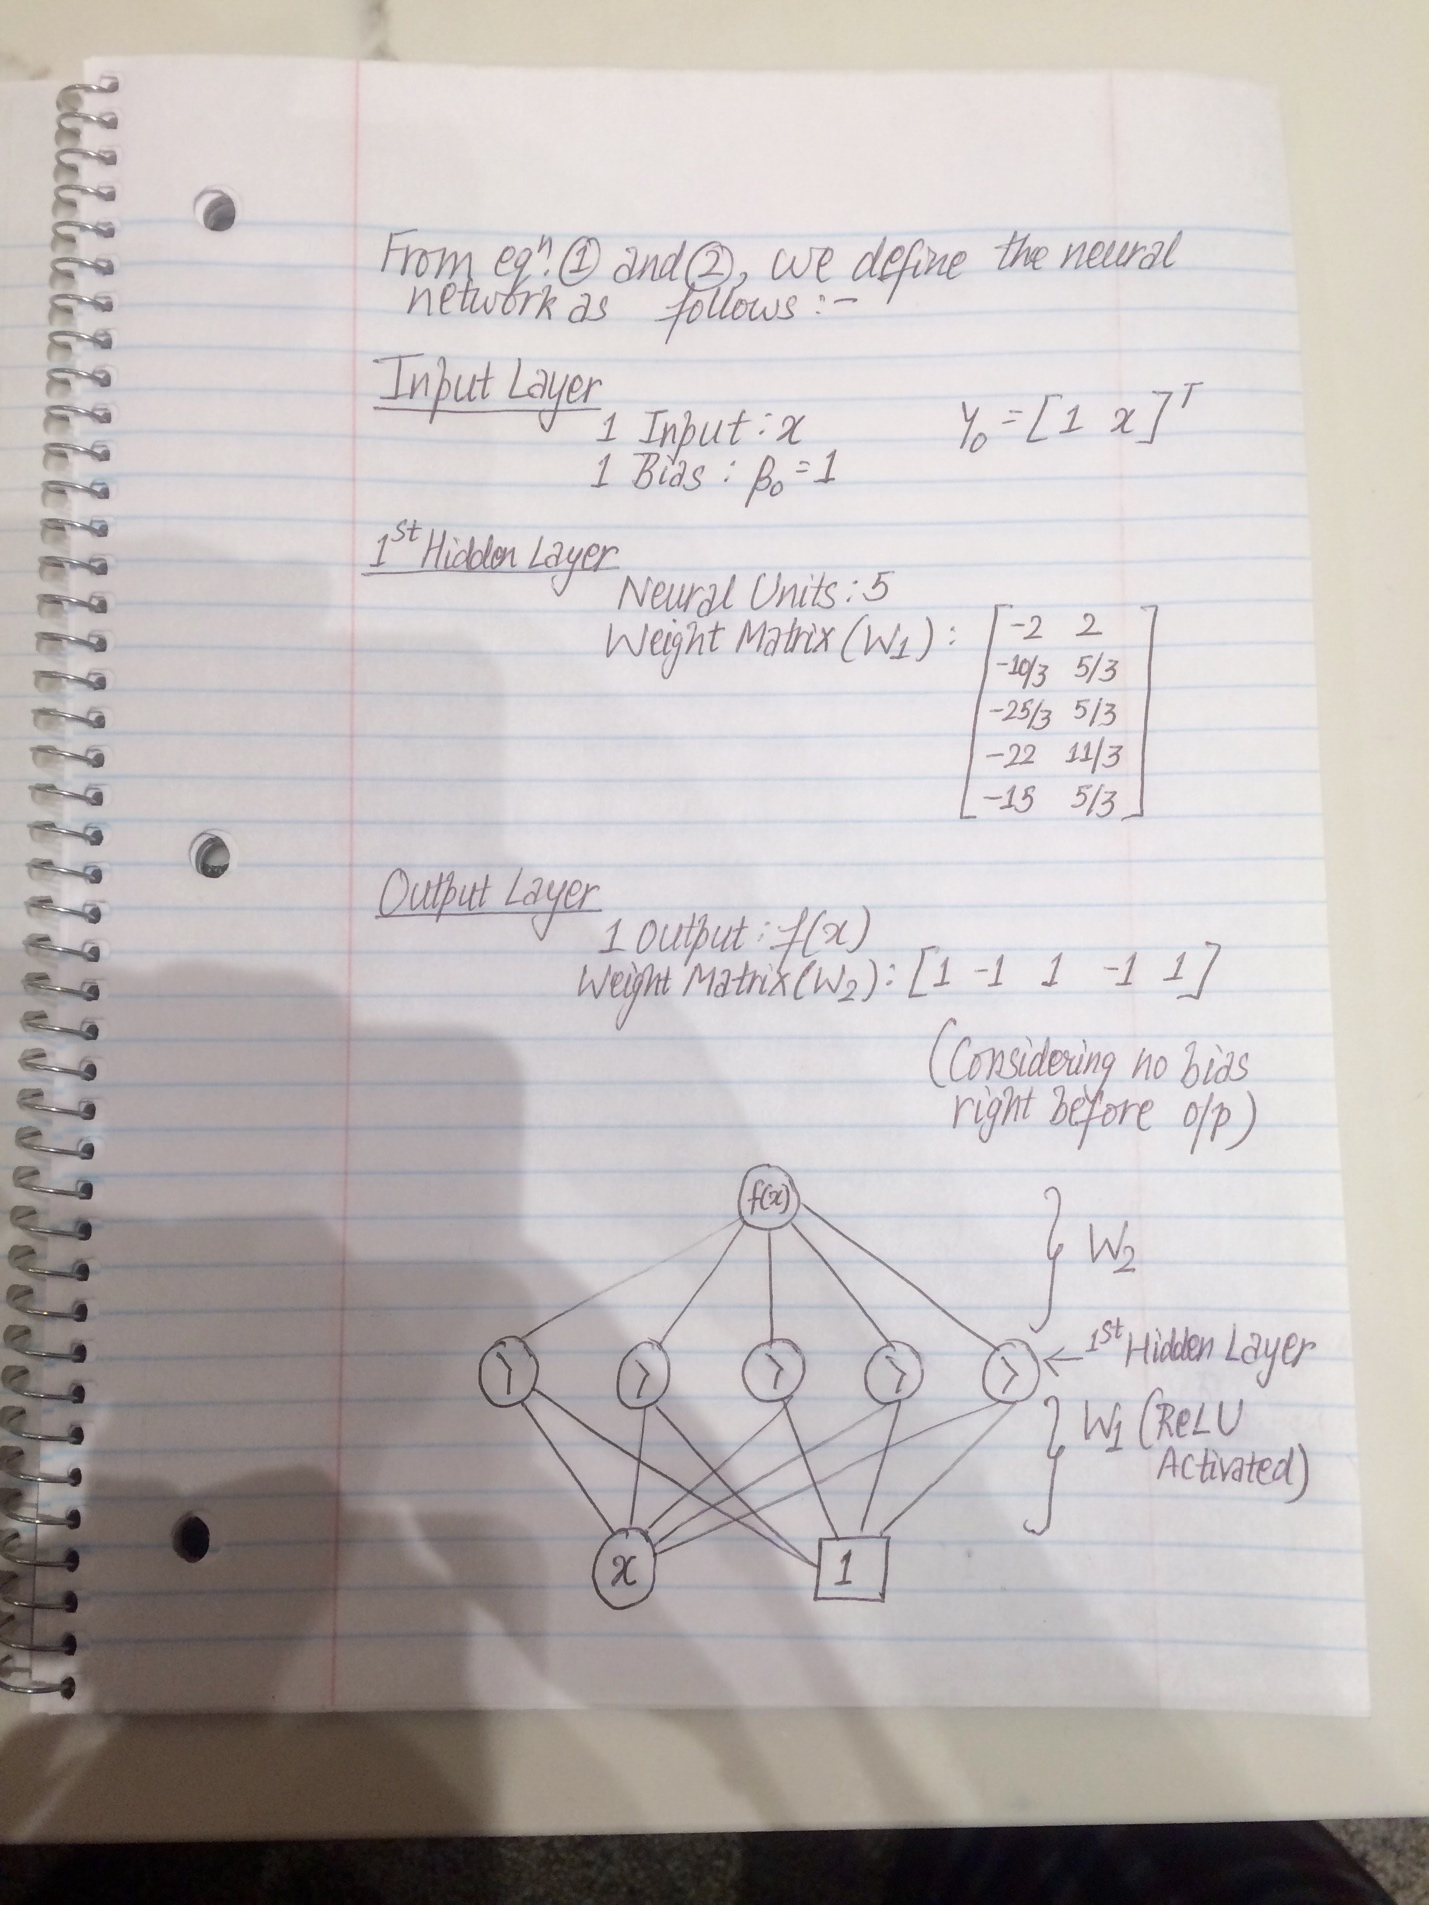 From eqⁿ. ① and ②, we define the neural
network as follows :-
Input Layer
1 Input : x
Y₀ = [1 x]ᵀ
1 Bias : β₀ = 1
1st Hidden Layer
Neural Units : 5
Weight Matrix (W₁) :
-2 2
-10/3 5/3
-25/3 5/3
-22 11/3
-15 5/3
Output Layer
1 Output : f(x)
Weight Matrix (W₂) : [1 -1 1 -1 1]
(Considering no bias
right before o/p)
f(x)
W₂
← 1st Hidden Layer
W₁ (ReLU
Activated)
x
1